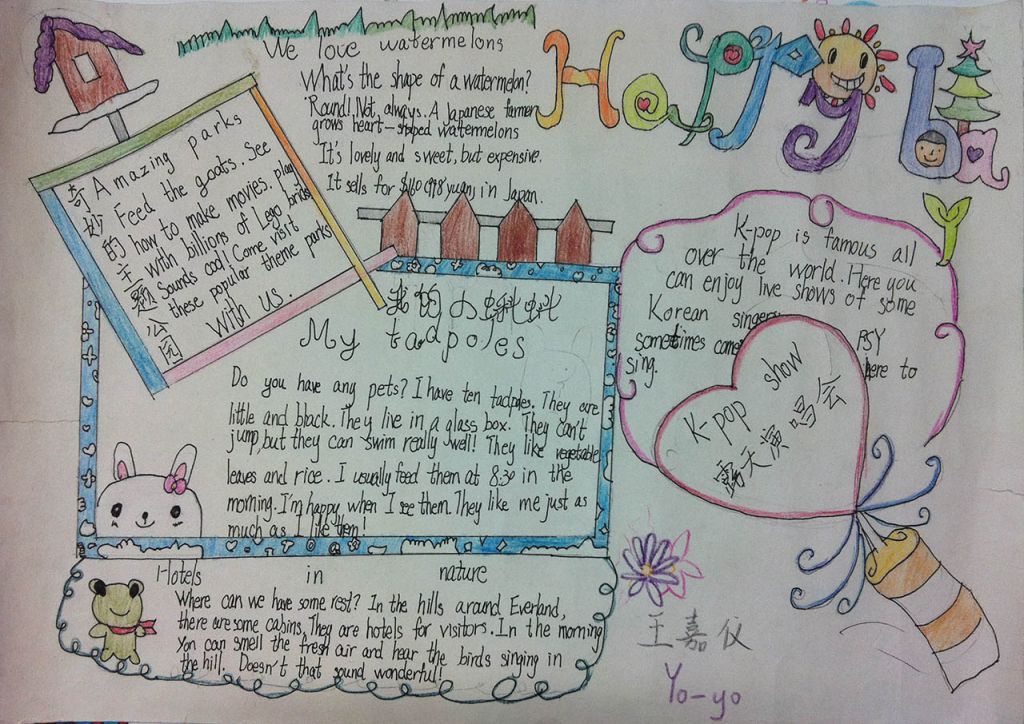 We love watermelons
What's the shape of a watermelon?
Round! Not, always. A Japanese farmer
grows heart-shaped watermelons
It's lovely and sweet, but expensive.
It sells for $160 (998 yuan) in Japan.
Happy ba
奇妙的主题公园
Amazing parks
Feed the goats. See
how to make movies. play
with billions of Lego bricks
Sounds cool! Come visit
these popular theme parks
with us.
我的小蝌蚪
My tadpoles
Do you have any pets? I have ten tadpoles. They are
little and black. They live in a glass box. They can't
jump, but they can swim really well! They like vegetable
leaves and rice. I usually feed them at 8:30 in the
morning. I'm happy when I see them. They like me just as
much as I like them!
K-pop is famous all
over the world. Here you
can enjoy live shows of some
Korean singers
PSY
sometimes come here to
sing.
K-pop show
露天演唱会
Hotels in nature
Where can we have some rest? In the hills around Everland,
there are some cabins. They are hotels for visitors. In the morning
you can smell the fresh air and hear the birds singing in
the hill. Doesn't that sound wonderful!
王嘉仪
Yo-yo